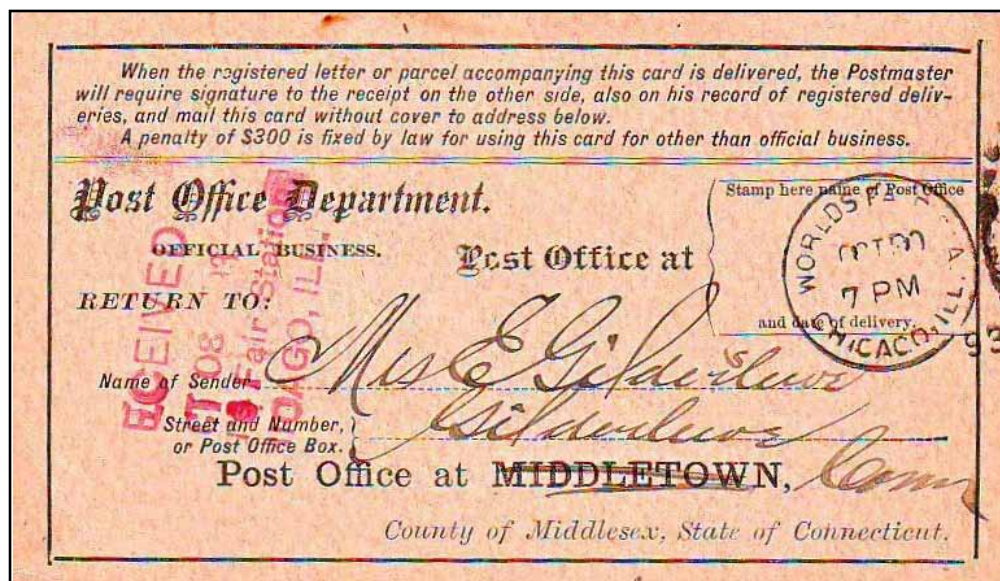 When the registered letter or parcel accompanying this card is delivered, the Postmaster
will require signature to the receipt on the other side, also on his record of registered deliv-
eries, and mail this card without cover to address below.
A penalty of $300 is fixed by law for using this card for other than official business.
Post Office Department.
OFFICIAL BUSINESS.
Post Office at
Stamp here name of Post Office
and date of delivery.
WORLDS FA
7 PM
CHICAGO, ILL.
RETURN TO:
Name of Sender Mrs E Gildersleeve
Street and Number,
or Post Office Box. Gildersleeve
Post Office at MIDDLETOWN, Conn
County of Middlesex, State of Connecticut.
Fair Station